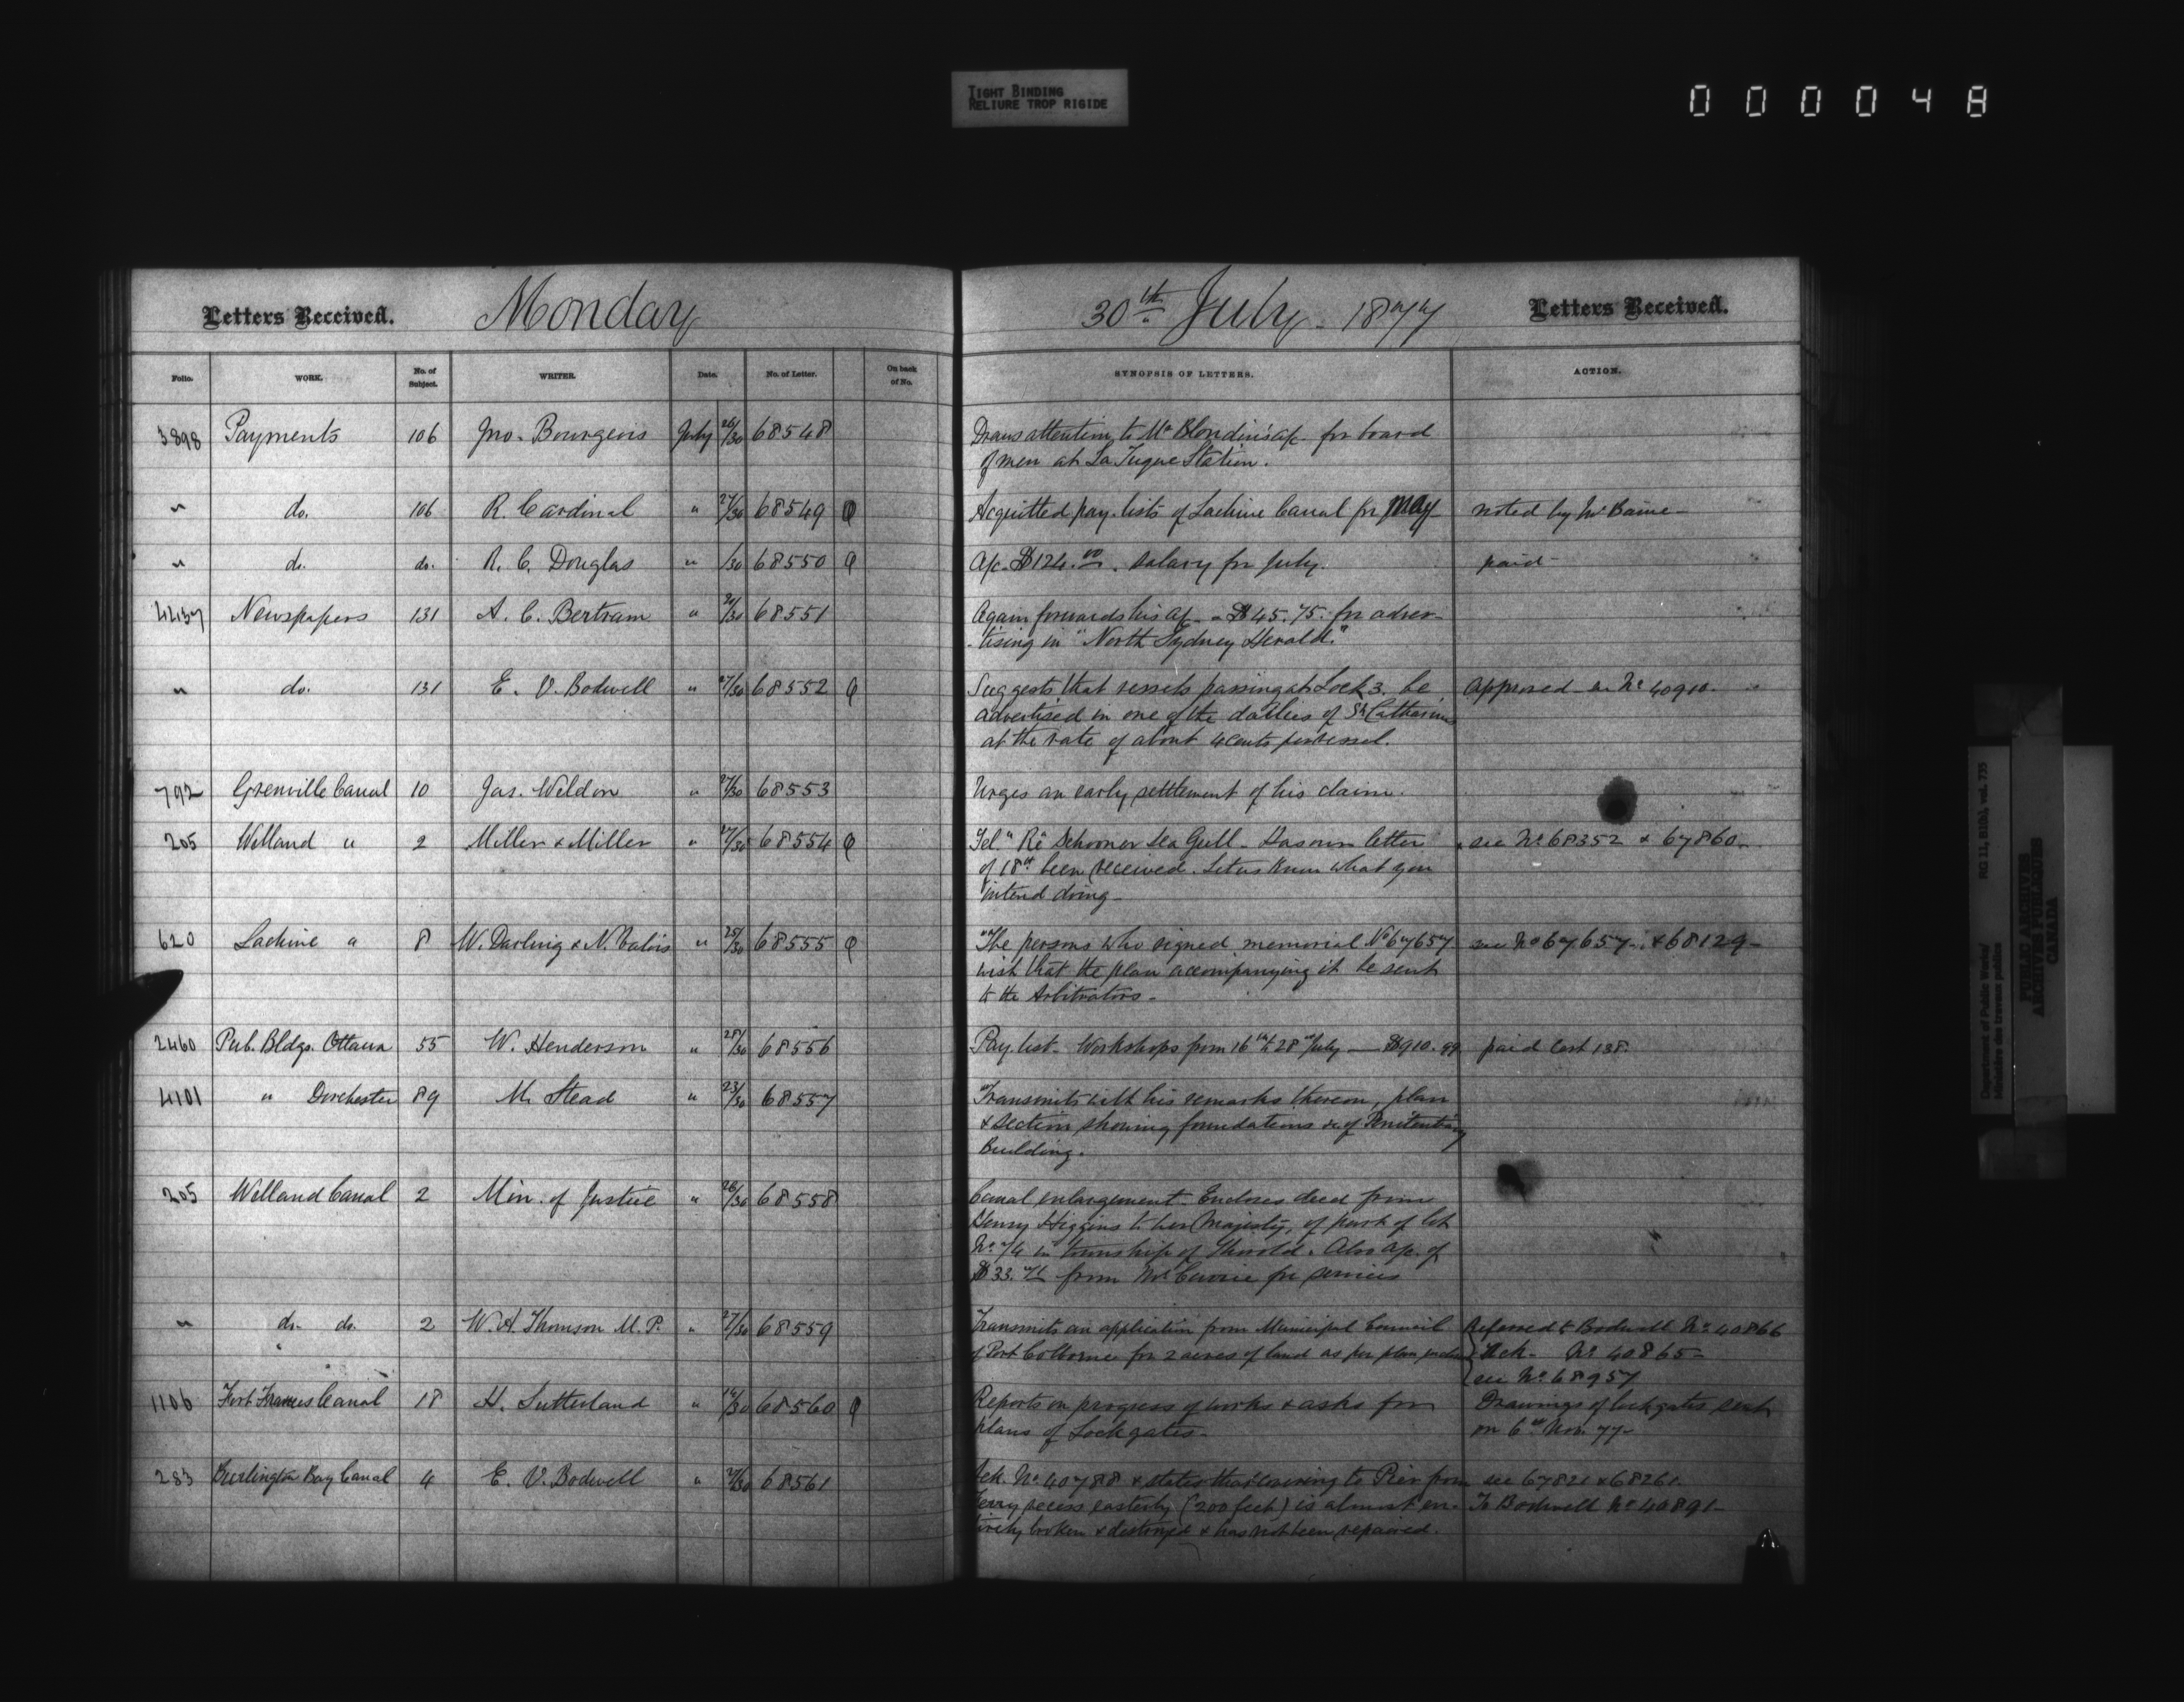 TIGHT BINDING
RELIURE TROP RIGIDE
000048
Letters Received. Monday 30th July - 1877 Letters Received.
Folio. WORK. No. of Subject. WRITER. Date. No. of Letter. On back of No. SYNOPSIS OF LETTERS. ACTION.
3898 Payments 106 Jno. Bourgeois July 26/30 68548 Draws attention to Mr Blondin's a/c. for board
of men at La Tuque Station.
" do. 106 R. Cardinal " 27/30 68549 Acquitted pay-lists of Lachine Canal for May noted by Mr Baine
" do. do. R. C. Douglas " /30 68550 A/c. $124.00. salary for July. paid
4437 Newspapers 131 A. C. Bertram " /30 68551 Again forwards his a/c - $45.75. for adver-
-tising in "North Sydney Herald."
" do. 131 E. V. Bodwell " 27/30 68552 Suggests that vessels passing at Lock 3. be Approved - No 40910.
advertised in one of the dailies of St Catharines
at the rate of about 4 cents per vessel.
792 Grenville Canal 10 Jas. Weldon " 27/30 68553 Urges an early settlement of his claim.
205 Welland " 2 Miller & Miller " 27/30 68554 Tel. "Re Schooner Sea Gull - Has our letter see No 68352 & 67860
of 18th been received. Let us know what you
intend doing -
620 Lachine " 8 W. Darling & N. Valois " 25/30 68555 The persons who signed memorial No 67657 see No 67657 & 68129
wish that the plan accompanying it be sent
to the Arbitrators -
2460 Pub. Bldgs. Ottawa 55 W. Henderson " 28/30 68556 Pay list - Workshops from 16th to 28th July — $910.99 paid Cert 138.
4101 " Dorchester 89 M. Stead " 23/30 68557 Transmits with his remarks thereon, plan
& section showing foundations &c. of Penitentiary
Building.
205 Welland Canal 2 Min. of Justice " 28/30 68558 Canal enlargement - Encloses deed from
Henry Higgins to Her Majesty, of part of lot
No. 74 in township of Thorold. Also a/c. of
$33. from Mr Currie for services
" do. do. 2 W. A. Thomson M.P. " 27/30 68559 Transmits an application from Municipal Council Referred to Bodwell No 40866
of Port Colborne for 2 acres of land as per plan Ack - No 40865 -
see No 68957
1106 Fort Frances Canal 18 H. Sutterland " 14/30 68560 Reports on progress of works & asks for Drawings of lock gates sent
plans of Lock gates - on 6th Nov. 77 -
283 Burlington Bay Canal 4 E. V. Bodwell " 27/30 68561 Ack. No 40788 & states that covering to Pier from see 67821 & 68261.
Ferry recess easterly (200 feet) is almost en- To Bodwell No 40891
tirely broken & destroyed & has not been repaired.
Department of Public Works/
Ministère des travaux publics
RG 11, B1(b), vol. 735
PUBLIC ARCHIVES
ARCHIVES PUBLIQUES
CANADA